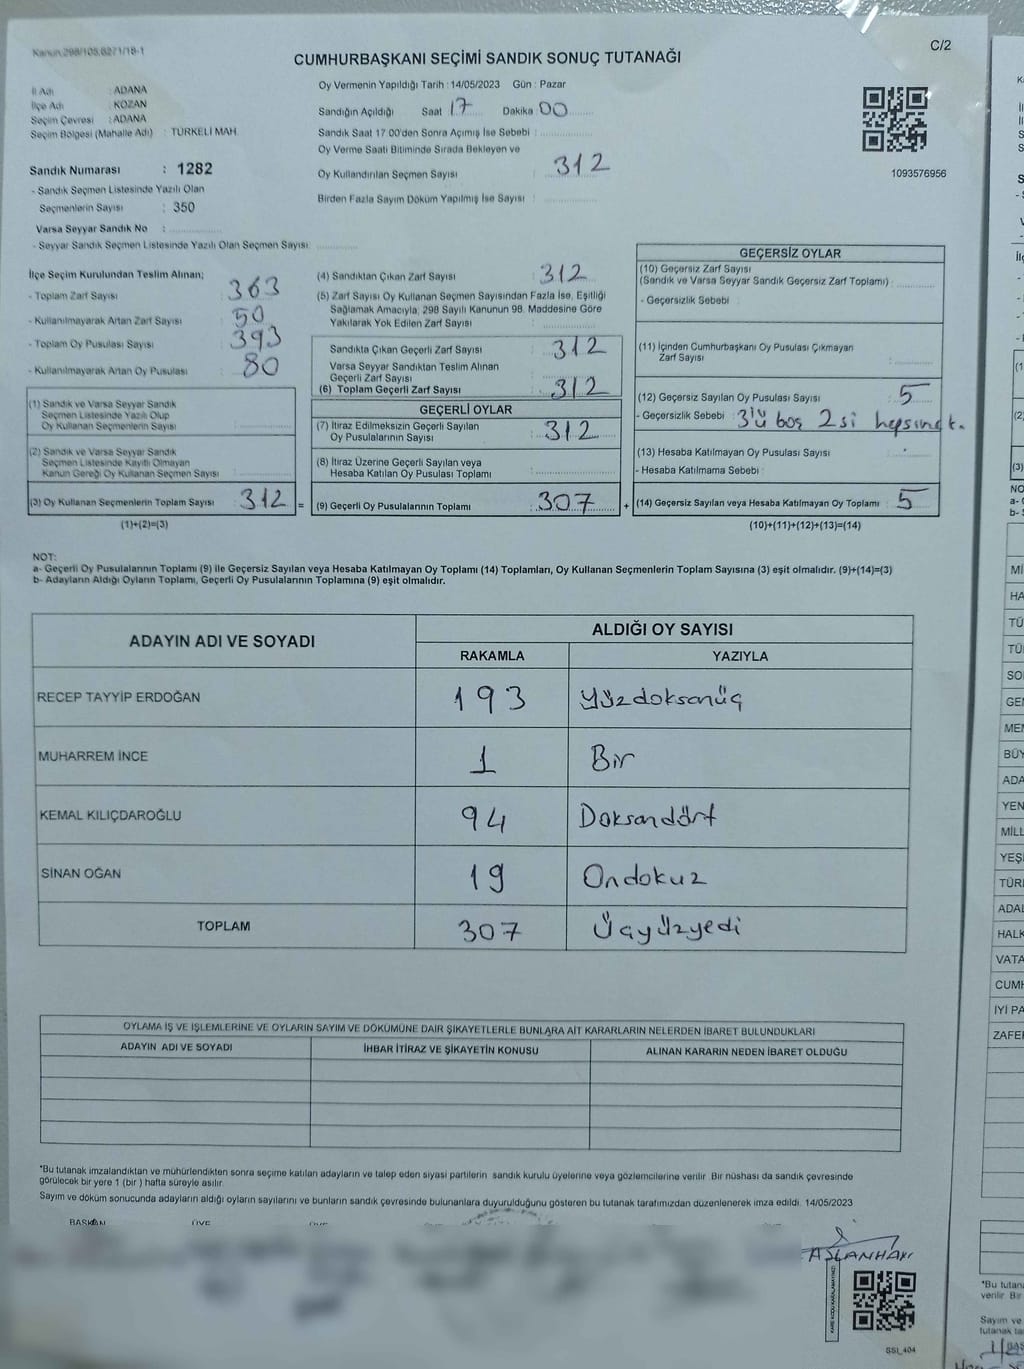 Kanun:298/105,6271/18-1
C/2
CUMHURBAŞKANI SEÇİMİ SANDIK SONUÇ TUTANAĞI
İl Adı : ADANA
İlçe Adı : KOZAN
Seçim Çevresi : ADANA
Seçim Bölgesi (Mahalle Adı) : TÜRKELİ MAH.
Oy Vermenin Yapıldığı Tarih : 14/05/2023 Gün : Pazar
Sandığın Açıldığı Saat 17 Dakika 00
Sandık Saat 17.00'den Sonra Açılmış İse Sebebi :
Oy Verme Saati Bitiminde Sırada Bekleyen ve
Oy Kullandırılan Seçmen Sayısı : 312
Birden Fazla Sayım Döküm Yapılmış İse Sayısı :
1093576956
Sandık Numarası : 1282
- Sandık Seçmen Listesinde Yazılı Olan
Seçmenlerin Sayısı : 350
Varsa Seyyar Sandık No :
- Seyyar Sandık Seçmen Listesinde Yazılı Olan Seçmen Sayısı:
İlçe Seçim Kurulundan Teslim Alınan;
- Toplam Zarf Sayısı : 363
- Kullanılmayarak Artan Zarf Sayısı : 50
- Toplam Oy Pusulası Sayısı : 393
- Kullanılmayarak Artan Oy Pusulası : 80
(1) Sandık ve Varsa Seyyar Sandık
Seçmen Listesinde Yazılı Olup
Oy Kullanan Seçmenlerin Sayısı :
(2) Sandık ve Varsa Seyyar Sandık
Seçmen Listesinde Kayıtlı Olmayan
Kanun Gereği Oy Kullanan Seçmen Sayısı :
(3) Oy Kullanan Seçmenlerin Toplam Sayısı : 312 =
(1)+(2)=(3)
(4) Sandıktan Çıkan Zarf Sayısı : 312
(5) Zarf Sayısı Oy Kullanan Seçmen Sayısından Fazla İse, Eşitliği
Sağlamak Amacıyla; 298 Sayılı Kanunun 98. Maddesine Göre
Yakılarak Yok Edilen Zarf Sayısı :
Sandıkta Çıkan Geçerli Zarf Sayısı : 312
Varsa Seyyar Sandıktan Teslim Alınan
Geçerli Zarf Sayısı :
(6) Toplam Geçerli Zarf Sayısı : 312
GEÇERLİ OYLAR
(7) İtiraz Edilmeksizin Geçerli Sayılan
Oy Pusulalarının Sayısı : 312
(8) İtiraz Üzerine Geçerli Sayılan veya
Hesaba Katılan Oy Pusulası Toplamı :
(9) Geçerli Oy Pusulalarının Toplamı : 307 +
GEÇERSİZ OYLAR
(10) Geçersiz Zarf Sayısı
(Sandık ve Varsa Seyyar Sandık Geçersiz Zarf Toplamı) :
- Geçersizlik Sebebi :
(11) İçinden Cumhurbaşkanı Oy Pusulası Çıkmayan
Zarf Sayısı :
(12) Geçersiz Sayılan Oy Pusulası Sayısı : 5
- Geçersizlik Sebebi : 3'ü boş 2si
(13) Hesaba Katılmayan Oy Pusulası Sayısı :
- Hesaba Katılmama Sebebi :
(14) Geçersiz Sayılan veya Hesaba Katılmayan Oy Toplamı : 5
(10)+(11)+(12)+(13)=(14)
NOT:
a- Geçerli Oy Pusulalarının Toplamı (9) ile Geçersiz Sayılan veya Hesaba Katılmayan Oy Toplamı (14) Toplamları, Oy Kullanan Seçmenlerin Toplam Sayısına (3) eşit olmalıdır. (9)+(14)=(3)
b- Adayların Aldığı Oyların Toplamı, Geçerli Oy Pusulalarının Toplamına (9) eşit olmalıdır.
ADAYIN ADI VE SOYADI
ALDIĞI OY SAYISI
RAKAMLA YAZIYLA
RECEP TAYYİP ERDOĞAN 193 Yüzdoksanüç
MUHARREM İNCE 1 Bir
KEMAL KILIÇDAROĞLU 94 Doksandört
SİNAN OĞAN 19 Ondokuz
TOPLAM 307 Üçyüzyedi
OYLAMA İŞ VE İŞLEMLERİNE VE OYLARIN SAYIM VE DÖKÜMÜNE DAİR ŞİKAYETLERLE BUNLARA AİT KARARLARIN NELERDEN İBARET BULUNDUKLARI
ADAYIN ADI VE SOYADI İHBAR İTİRAZ VE ŞİKAYETİN KONUSU ALINAN KARARIN NEDEN İBARET OLDUĞU
*Bu tutanak imzalandıktan ve mühürlendikten sonra seçime katılan adayların ve talep eden siyasi partilerin sandık kurulu üyelerine veya gözlemcilerine verilir. Bir nüshası da sandık çevresinde
görülecek bir yere 1 (bir) hafta süreyle asılır.
Sayım ve döküm sonucunda adayların aldığı oyların sayılarını ve bunların sandık çevresinde bulunanlara duyurulduğunu gösteren bu tutanak tarafımızdan düzenlenerek imza edildi. 14/05/2023
BAŞKAN ÜYE ÜYE
ASLANHAN
SSİ_404